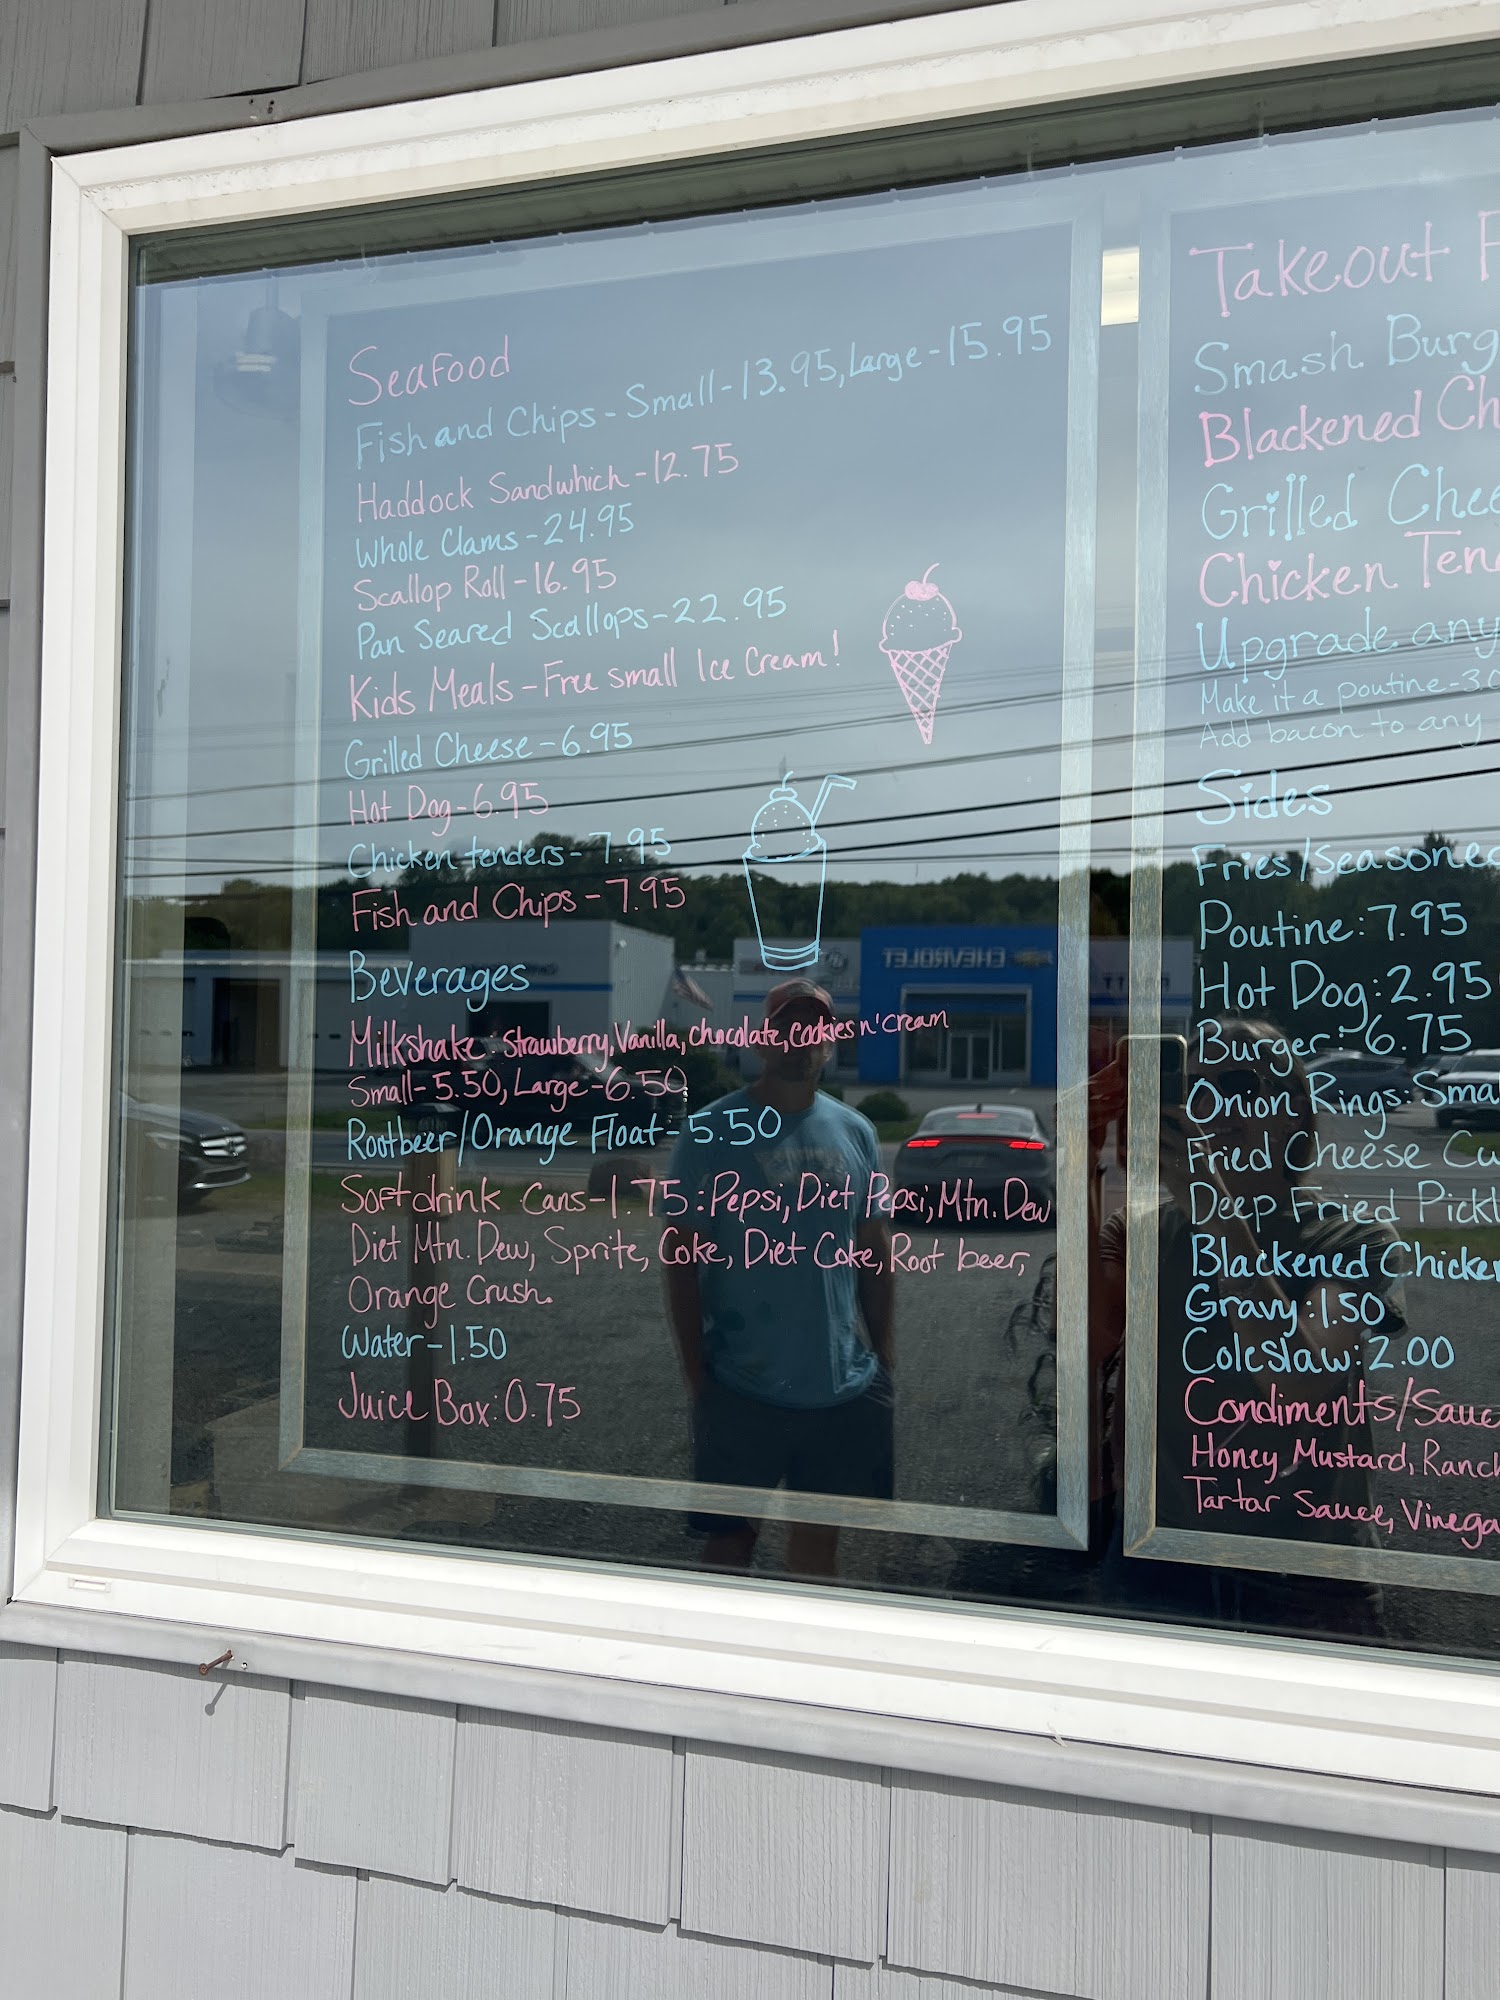 Seafood
Fish and Chips - Small - 13.95, Large - 15.95
Haddock Sandwhich - 12.75
Whole Clams - 24.95
Scallop Roll - 16.95
Pan Seared Scallops - 22.95
Kids Meals - Free small Ice Cream!
Grilled Cheese - 6.95
Hot Dog - 6.95
Chicken tenders - 7.95
Fish and Chips - 7.95
Beverages
Milkshake: Strawberry, Vanilla, chocolate, cookies n' cream
Small - 5.50, Large - 6.50
Rootbeer/Orange Float - 5.50
Soft drink cans - 1.75: Pepsi, Diet Pepsi, Mtn. Dew
Diet Mtn. Dew, Sprite, Coke, Diet Coke, Root beer,
Orange Crush.
Water - 1.50
Juice Box: 0.75
Takeout
Smash Burg
Blackened Ch
Grilled Chee
Chicken Ten
Upgrade any
Make it a poutine - 3.0
Add bacon to any
Sides
Fries/Seasoned
Poutine: 7.95
Hot Dog: 2.95
Burger: 6.75
Onion Rings: Sma
Fried Cheese Cu
Deep Fried Pickl
Blackened Chicken
Gravy: 1.50
Coleslaw: 2.00
Condiments/Sauc
Honey Mustard, Ranch
Tartar Sauce, Vinega
CHEVROLET